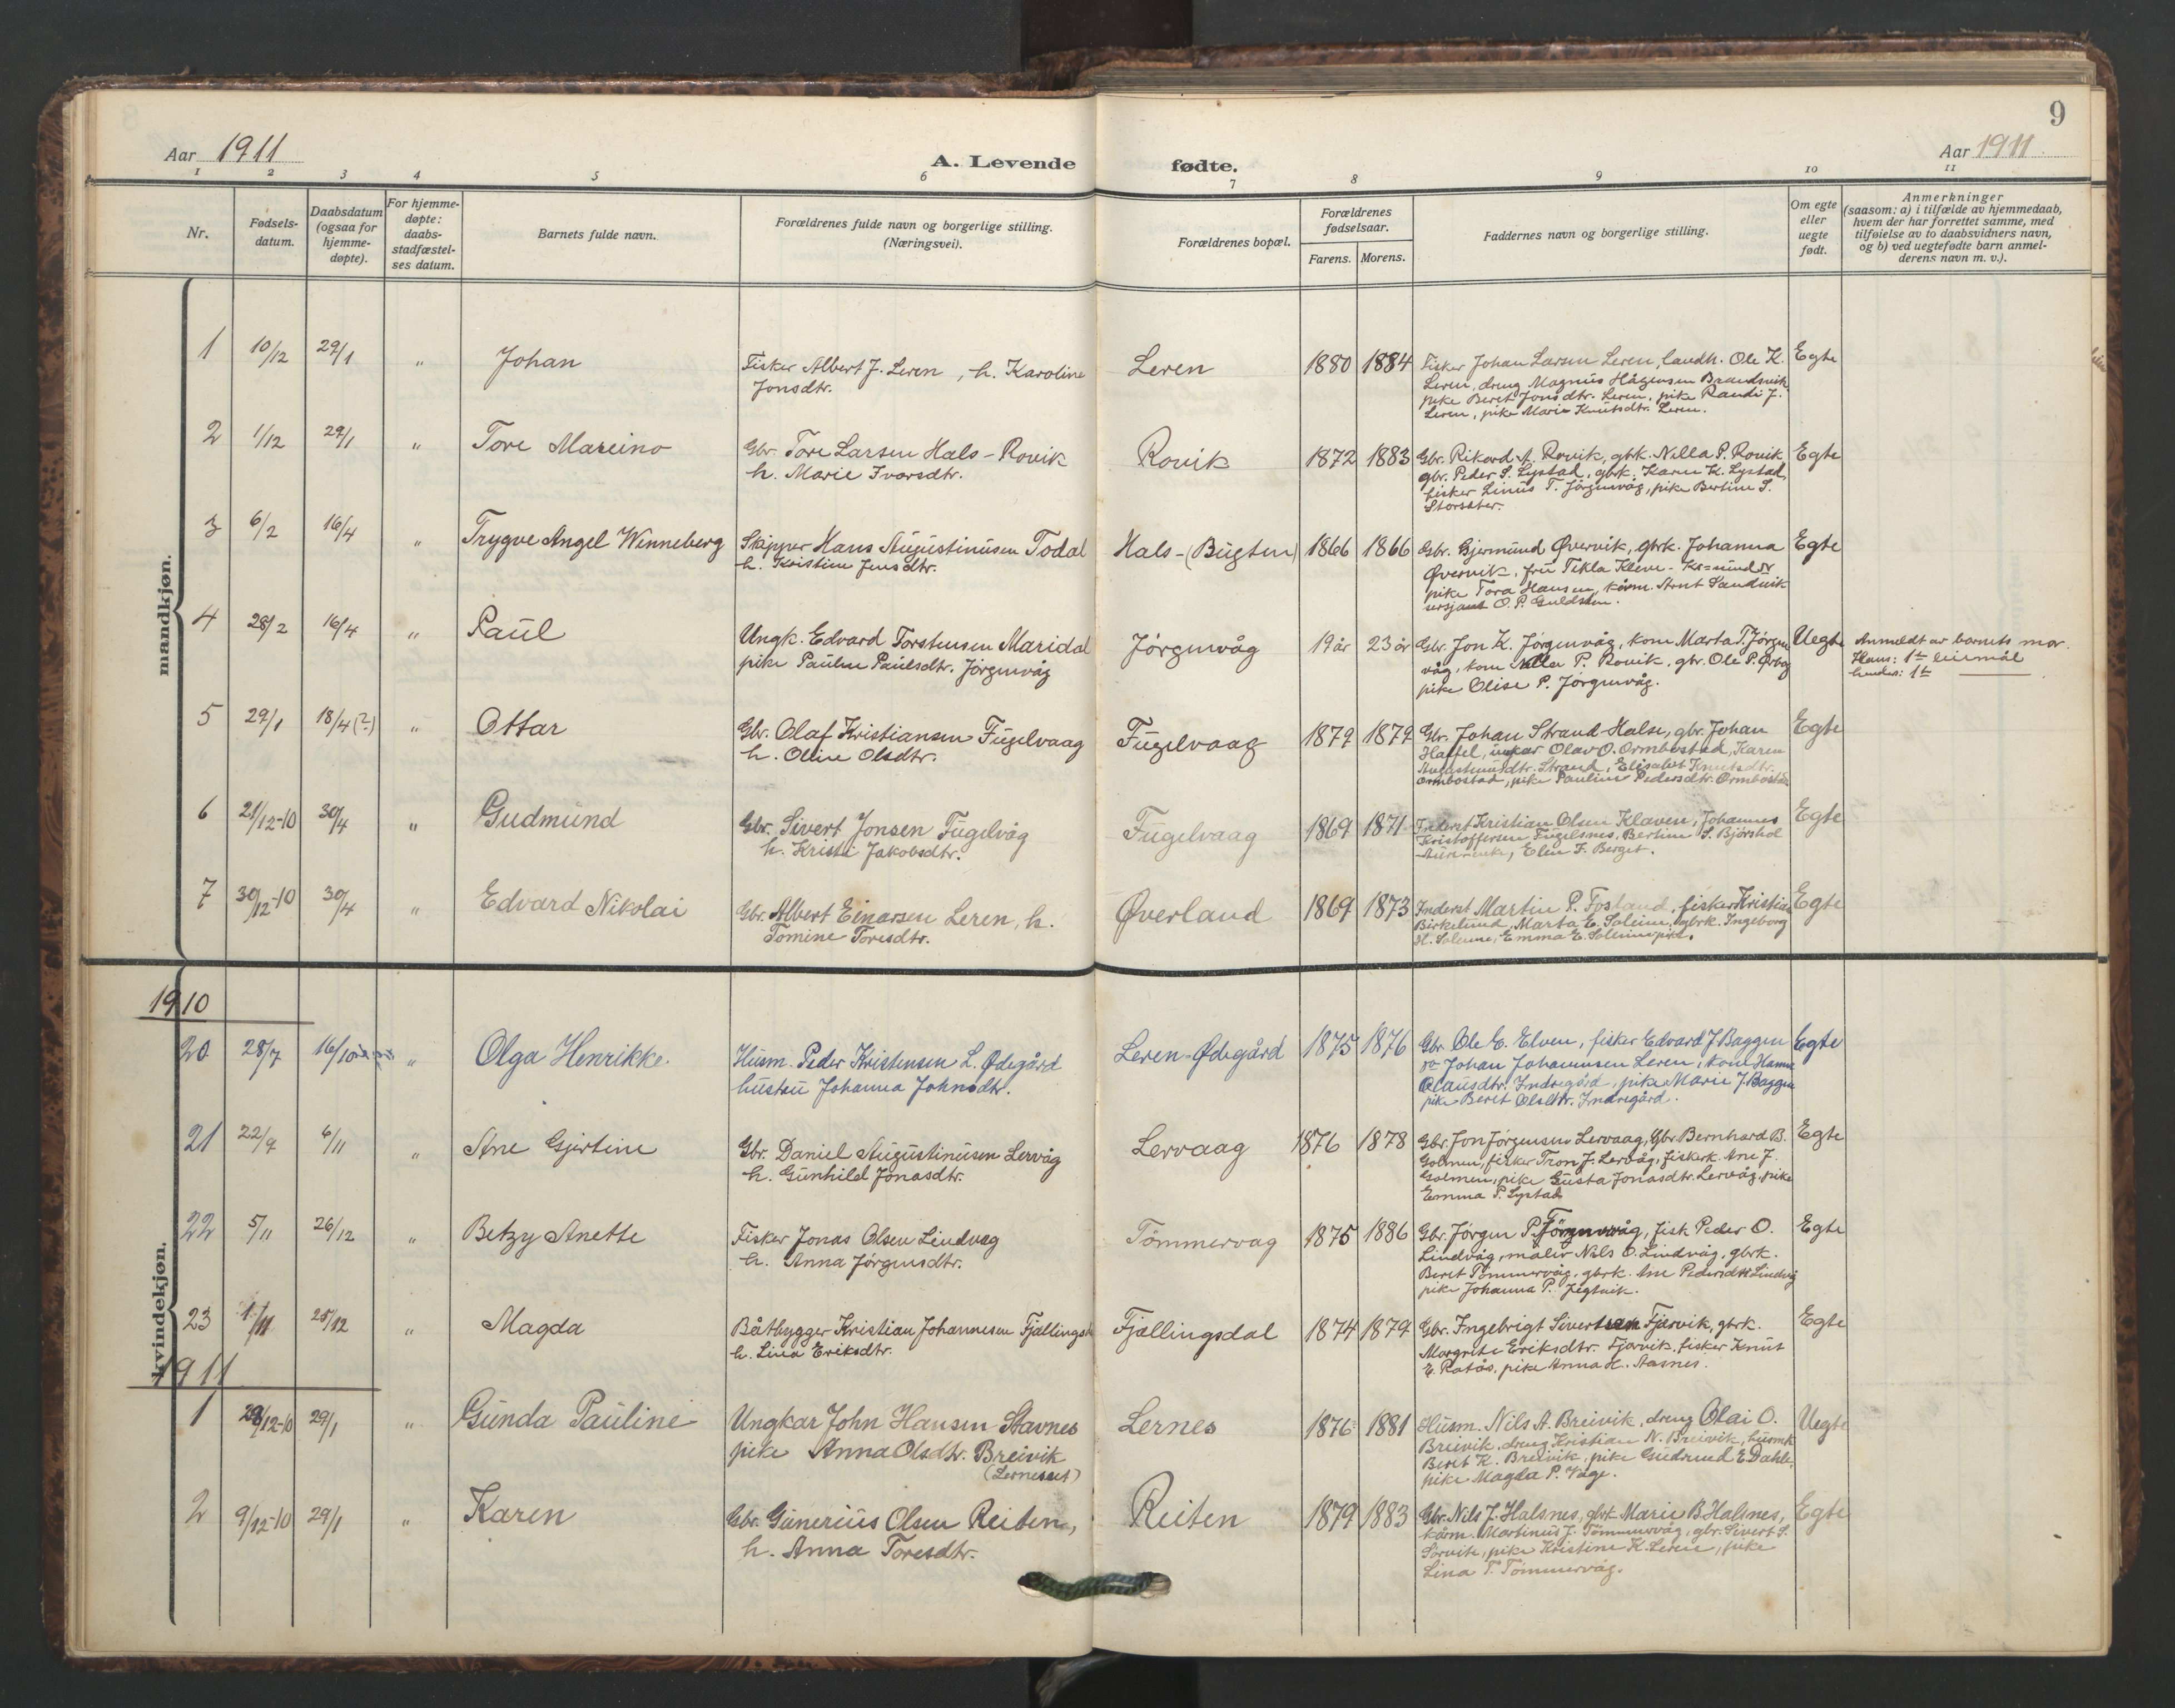 8
9
Aar 1911
A. Levende fødte.
Aar 1911
1 2 3 4 5 6 7 8 9 10 11
Nr.
Fødsels-
datum.
Daabsdatum
(ogsaa for
hjemme-
døpte).
For hjemme-
døpte:
daabs-
stadfæstel-
ses datum.
Barnets fulde navn.
Forældrenes fulde navn og borgerlige stilling.
(Næringsvei).
Forældrenes bopæl.
Forældrenes
fødselsaar.
Farens. Morens.
Faddernes navn og borgerlige stilling.
Om egte
eller
uegte
født.
Anmerkninger
(saasom: a) i tilfælde av hjemmedaab,
hvem der har forrettet samme, med
tilføielse av to daabsvidners navn,
og b) ved uegtefødte barn anmel-
derens navn m. v.).
mandkjøn.
1 10/12 29/1 " Johan
Fisker Albert J. Leren, h. Karoline
Jonsdtr.
Leren 1880 1884
Fisker Johan Larsen Leren, landh. Ole K.
Leren, dreng Magnus Hågensen Brandsvik
pike Beret Jonsdtr. Leren, pike Randi J.
Leren, pike Marie Knutsdtr. Leren.
Egte
2 1/12 29/1 " Tore Mareino
Gbr. Tore Larsen Hals-Rovik
h. Marie Ivarsdtr.
Rovik 1872 1883
Gbr. Rikard A. Rovik, gbrk. Nilla P. Rovik
gbr. Peder S. Lystad, gbrk. Karen K. Lystad,
fisker Linus T. Jörgenvåg, pike Bertine S.
Storsæter.
Egte
3 6/2 16/4 " Trygve Angel Winneberg
Skipper Hans Augustinusen Todal
h. Kristine Jensdtr.
Hals-(Bugten) 1866 1866
Gbr. Gjermund Øvervik, gbrk. Johanna
Øvervik, fru Tekla Kleve - Kr=sund N
pike Tora Hansen, kårm. Arnt Sandvik
sersjant O. P. Guldsten.
Egte
4 28/2 16/4 " Paul
Ungk. Edvard Torstensen Maridal
pike Pauline Paulsdtr. Jörgenvåg
Jörgenvåg 19 år 23 år
Gbr. Jon K. Jørgenvåg, kone Marta T. Jørgen
våg, kone Nilla P. Rovik, gbr. Ole P. Ørbog
pike Olise P. Jørgenvåg.
Uegte
Anmeldt av barnets mor.
Hans: 1te leiermål
hendes: 1te
5 29/1 18/4 (2) " Ottar
Gbr. Olaf Kristiansen Fugelvaag
h. Oline Olsdtr.
Fugelvaag 1879 1879
Gbr. Johan Strand-Halse, gbr. Johan
Haltel, ungkar Olav O. Ormbostad, Karen
Augustinusdtr. Strand, Elisabet Knutsdtr.
Ormbostad, pike Pauline Pedersdtr. Ormbostad
Egte
6 21/12-10 30/4 " Gudmund
Gbr. Sivert Jonsen Fugelvåg
h. Kristi Jakobsdtr.
Fugelvaag 1869 1871
Inderst Kristian Olsen Klaven, Johannes
Kristoffersen Fugelsnes, Bertine S. Bjørshol
Elen F. Berget.
Egte
7 30/12-10 30/4 " Edvard Nikolai
Gbr. Albert Einarsen Leren, h.
Tomine Toresdtr.
Øverland 1869 1873
Inderst Martin P. Fosland, fisker Kristian
Birkelund, Marta E. Soleim, gbrk. Ingeborg
H. Soleim, Emma E. Soleim pike.
Egte
1910
kvindekjøn.
20 28/7 16/10 " Olga Henrikke.
Husm. Peder Kristensen L. Ødegård
hustru Johanna Johnsdtr.
Leren-Ødegård 1875 1876
Gbr. Ole E. Elven, fisker Edvard J. Baggen
Johan Johannesen Leren, kone Hanna
Olausdtr. Indregård, pike Marie J. Baggen
pike Beret Olsdtr. Indregård.
Egte
21 22/9 6/11 " Ane Gjertine
Gbr. Daniel Augustinusen Lervåg
h. Gunhild Jonasdtr.
Lervaag 1876 1878
Gbr. Jon Jörgensen Lervaag, Gbr. Bernhard B.
Golmen, fisker Tron J. Lervåg, fiskerk. Ane J.
Golmen, pike Gusta Jonasdtr. Lervåg, pike
Emma P. Lystad
Egte
22 5/11 26/12 " Betzy Anette
Fisker Jonas Olsen Lindvag
h. Anna Jörgensdtr.
Tömmervag 1875 1886
Gbr. Jörgen P. Tömmervåg, fisk Peder O.
Lindvåg, maler Nils O. Lindvåg, gbrk.
Beret Tömmervåg, gbrk. Ane Pedersdtr. Lindvåg
pike Johanna P. Jegtvik.
Egte
23 1/11 25/12 " Magda
Båtbygger Kristian Johannesen Fjellingsd
h. Lina Eriksdtr.
Fjællingsdal 1874 1879
Gbr. Ingebrigt Sivertsen Fjærvik, gbrk.
Margrete Eriksdtr. Fjærvik, fisker Knut
E. Rotås, pike Anna H. Aasnes.
Egte
1911
1 29/12-10 29/1 " Gunda Pauline
Ungkar John Hansen Stavnes
pike Anna Olsdtr. Breivik
(Lerneset)
Lernes 1876 1881
Husm. Nils A. Breivik, dreng Olai O.
Breivik, dreng Kristian N. Breivik, husmk.
Beret K. Breivik, pike Gudrund E. Dahle,
pike Magda P. Våge.
Uegte
2 9/12-10 29/1 " Karen
Gbr. Gunerius Olsen Reiten,
h. Anna Toresdtr.
Reiten 1879 1883
Gbr. Nils J. Halsnes, gbrk. Marie B. Halsnes,
kårm. Martinus J. Tömmervåg, gbr. Sivert S.
Sörvik, pike Kristine K. Leren, pike
Lina T. Tömmervåg.
Egte